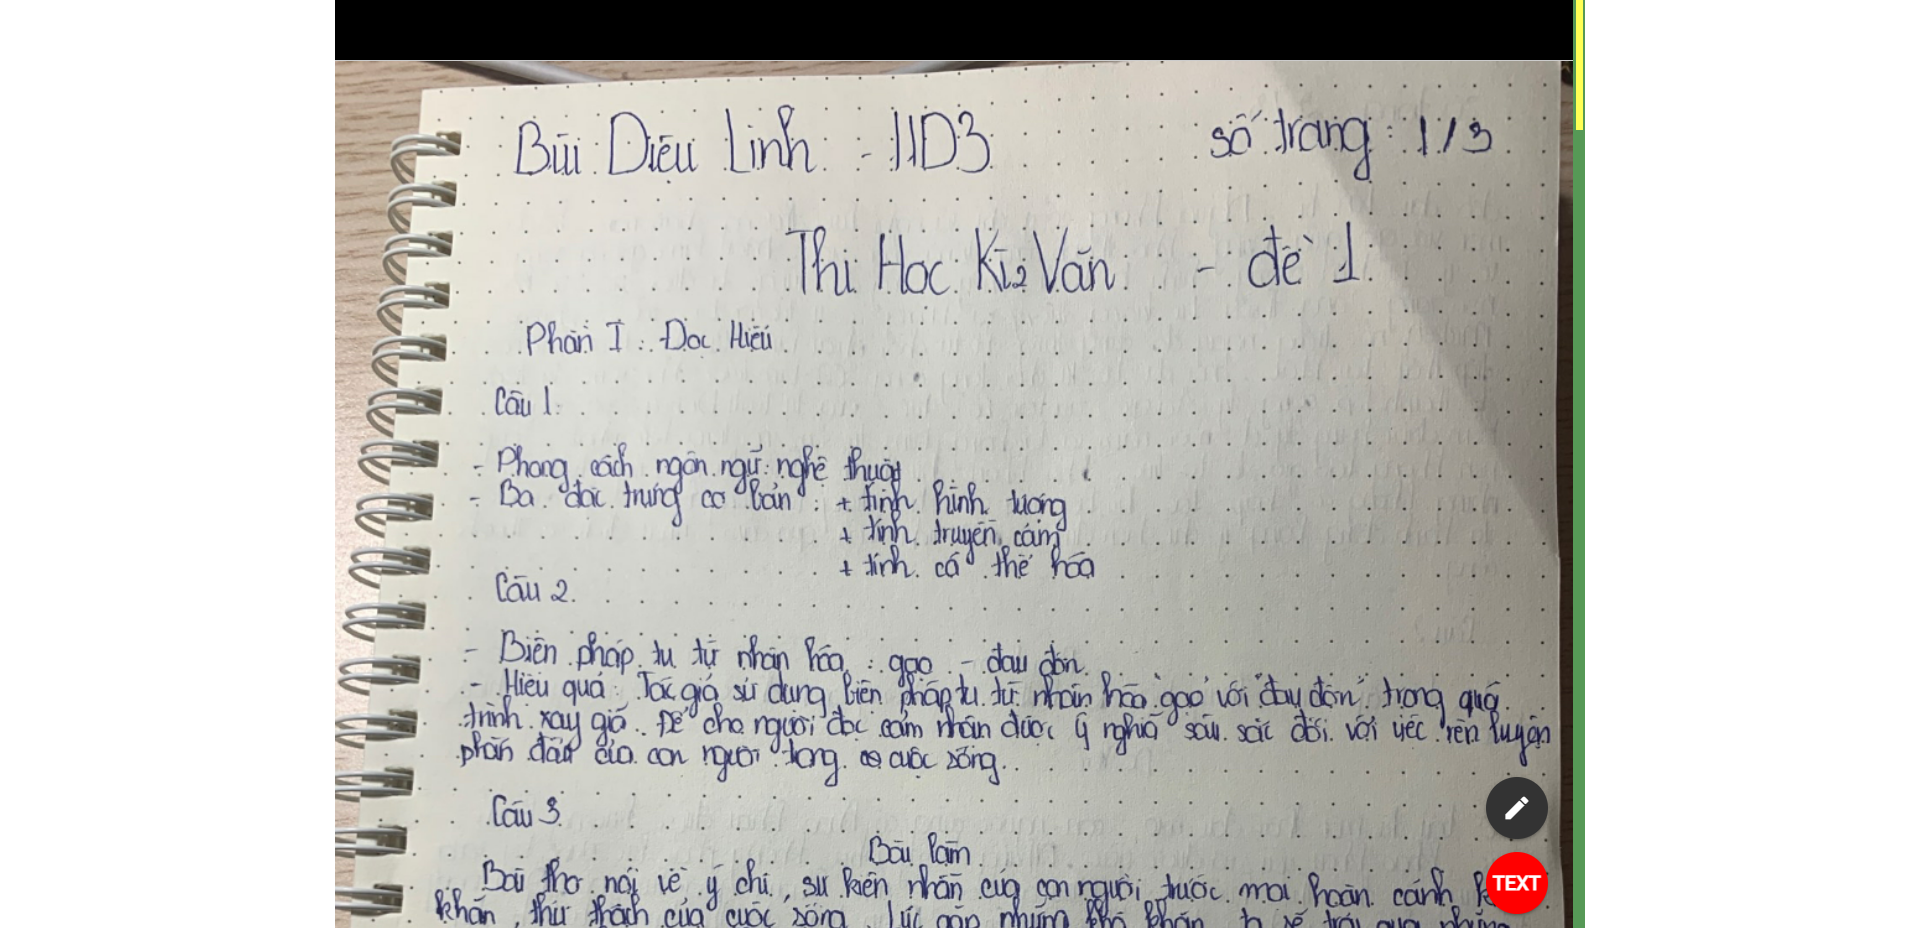 Bùi Diệu Linh - 11D3
số trang : 1/3
Thi Học Kì 2 Văn - đề 1
Phần I : Đọc Hiểu
Câu 1
- Phong cách ngôn ngữ nghệ thuật
- Ba đặc trưng cơ bản : + tính hình tượng
+ tính truyền cảm
+ tính cá thể hóa
Câu 2.
- Biện pháp tu từ nhân hóa : gạo - đau đớn
- Hiệu quả : Tác giả sử dụng biện pháp tu từ nhân hóa "gạo" với "đau đớn" trong quá
trình xay giã. Để cho người đọc cảm nhận được ý nghĩa sâu sắc đối với việc rèn luyện
phấn đấu của con người trong cuộc sống.
Câu 3
Bài làm
Bài thơ nói về ý chí, sự kiên nhẫn của con người trước mọi hoàn cảnh
khăn, thử thách của cuộc sống. Lúc gặp những khó khăn, ta sẽ trải qua những
TEXT